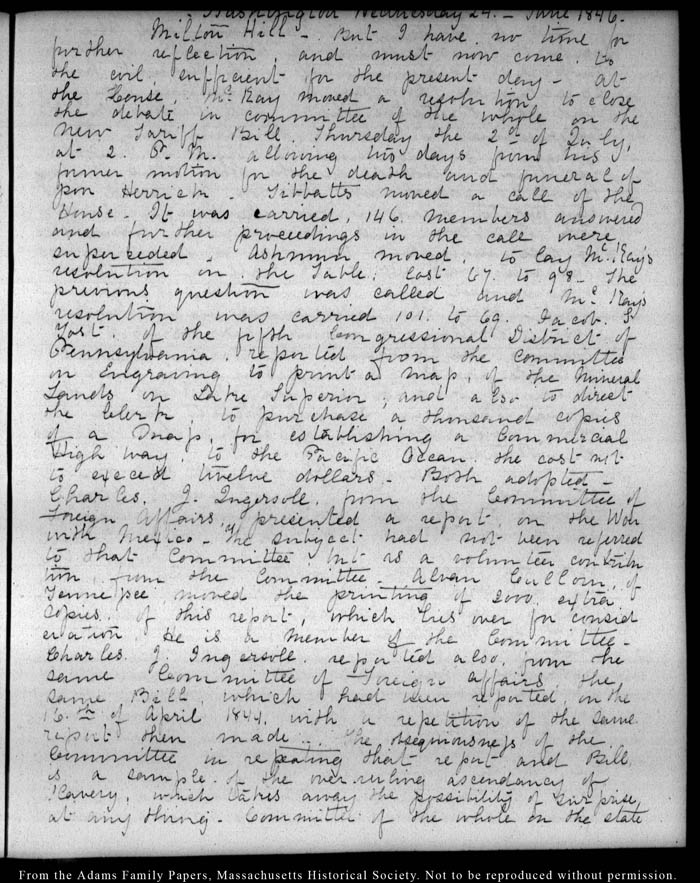 Washington Wednesday 24. – June 1846.
Milton Hill – But I have no time for
further reflection, and must now come to
the evil, sufficient for the present day – At
the House, Mc. Kay moved a resolution to close
the debate in committee of the whole on the
New Tariff Bill, Thursday the 2d of July,
at 2. P.M. allowing two days from his
former motion for the death and funeral of
poor Herrick – Tibbatts moved a call of the
House – It was carried, 146. members answered
and further proceedings in the call were
superceded – Ashmun moved, to lay Mc. Kay's
resolution on the Table, lost 67. to 98 – The
previous question was called and Mc. Kay's
resolution was carried 101. to 69. Jacob. S.
Yost, of the fifth Congressional District of
Pennsylvania, reported from the Committee
on Engraving to print a map, of the Mineral
Lands on Lake Superior, and also to direct
the Clerk, to purchase a thousand copies
of a Map, for establishing a Commercial
Highway, to the Pacific Ocean, the cost not
to exceed twelve dollars – Both adopted –
Charles. J. Ingersoll, from the Committee of
Foreign Affairs, presented a report, on the War
with Mexico – the subject had not been referred
to that Committee, but as a volunteer contribu
tion, from the Committee – Alvan Cullom, of
Tennessee moved the printing of 2000. extra
copies, of this report, which lies over for consid
eration. He is a member of the Committee –
Charles. J. Ingersoll, reported also, from the
same Committee of Foreign affairs, the
same Bill, which had been reported, on the
16.th of April 1844. with a repetition of the same
report then made – the obsequiousness of the
Committee in repeating that report and Bill,
is a sample of the over ruling ascendancy of
slavery, which takes away the possibility of surprise,
at any thing – Committee of the whole on the state
From the Adams Family Papers, Massachusetts Historical Society. Not to be reproduced without permission.